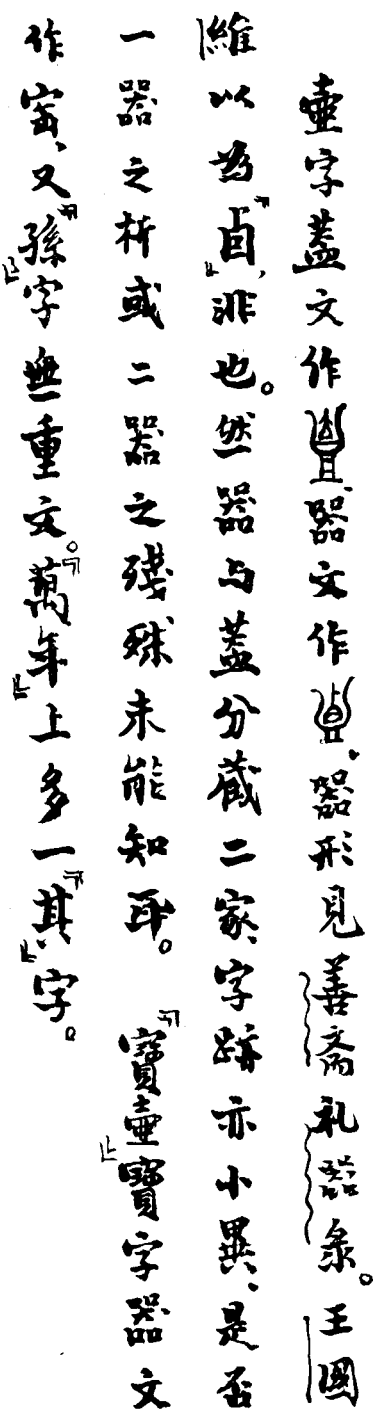 壷字蓋文作器文作、器形見善斋礼器彔。王國
維以為『卣』,非也。然器与蓋分藏二家、字跡亦小異、是否
一器之析或二器之殘殊未能知耳。『寶壷』寶字器文
作寚、又『孫』字無重文。『萬年』上多一『其』字。